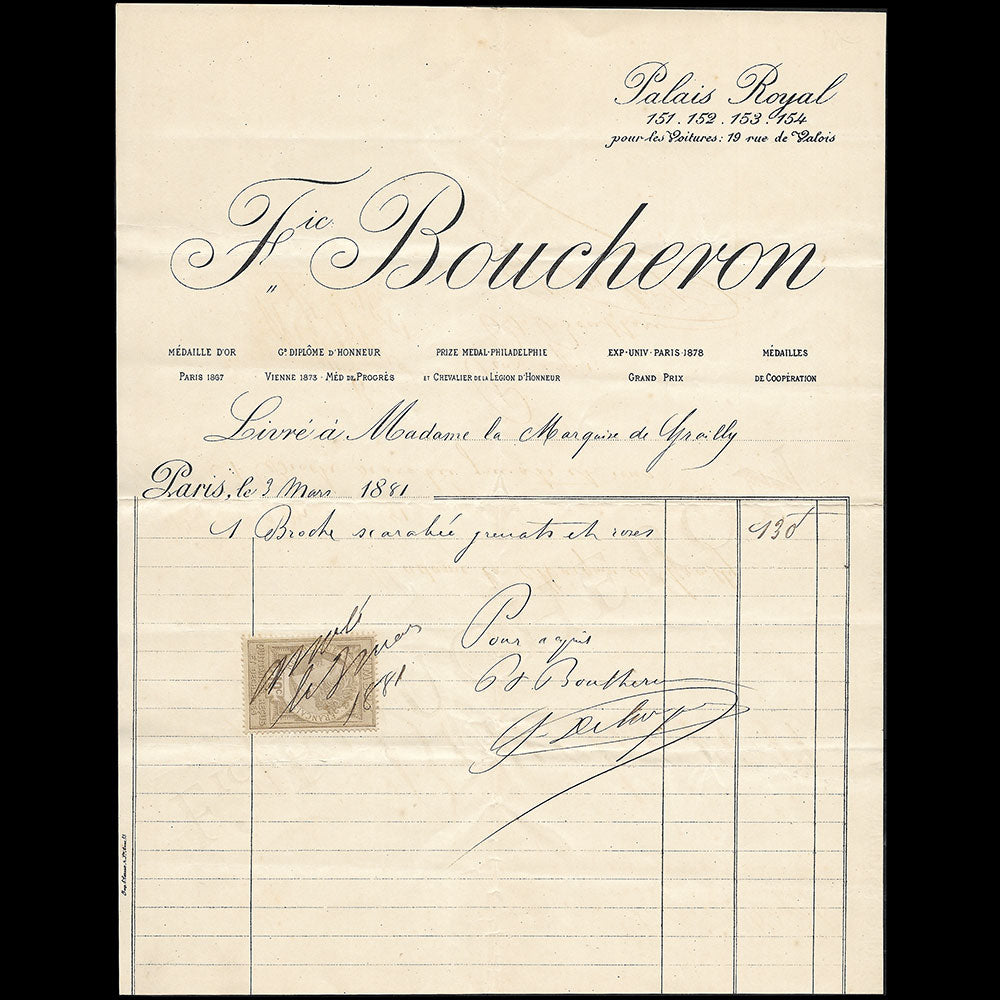 Palais Royal
151. 152. 153. 154
pour les Voitures: 19 rue de Valois
Fic Boucheron
MÉDAILLE D'OR G.D DIPLÔME D'HONNEUR PRIZE MEDAL-PHILADELPHIE EXP-UNIV-PARIS-1878 MÉDAILLES
PARIS 1867 VIENNE 1873 - MÉD DE PROGRÈS ET CHEVALIER DE LA LÉGION D'HONNEUR GRAND PRIX DE COOPÉRATION
Livré à Madame la Marquise de Grailly
Paris, le 3 Mars 1881
1 Broche scarabée grenats et roses 130
Pour acquis
Boucheron
le 3 mars
1881